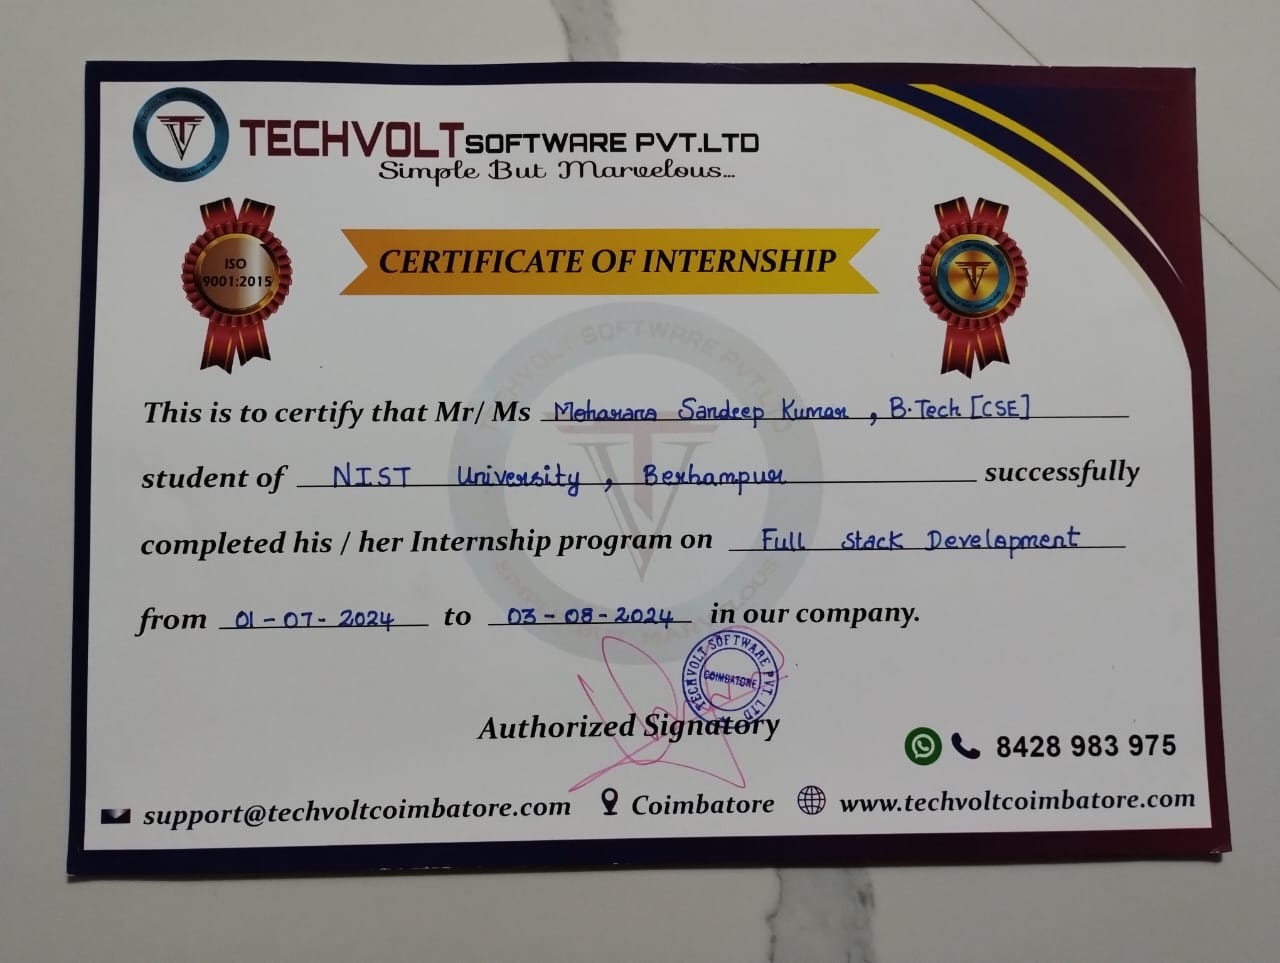 TECHVOLT SOFTWARE PVT.LTD
Simple But Marvelous...
ISO
9001:2015
CERTIFICATE OF INTERNSHIP
TECHVOLT SOFTWARE PVT.LTD
This is to certify that Mr/ Ms Moharana Sandeep Kumar , B.Tech [CSE]
student of NIST University , Berhampur successfully
completed his / her Internship program on Full Stack Development
from 01-07-2024 to 03-08-2024 in our company.
TECHVOLT SOFTWARE PVT. LTD
COIMBATORE
Authorized Signatory
8428 983 975
support@techvoltcoimbatore.com Coimbatore www.techvoltcoimbatore.com